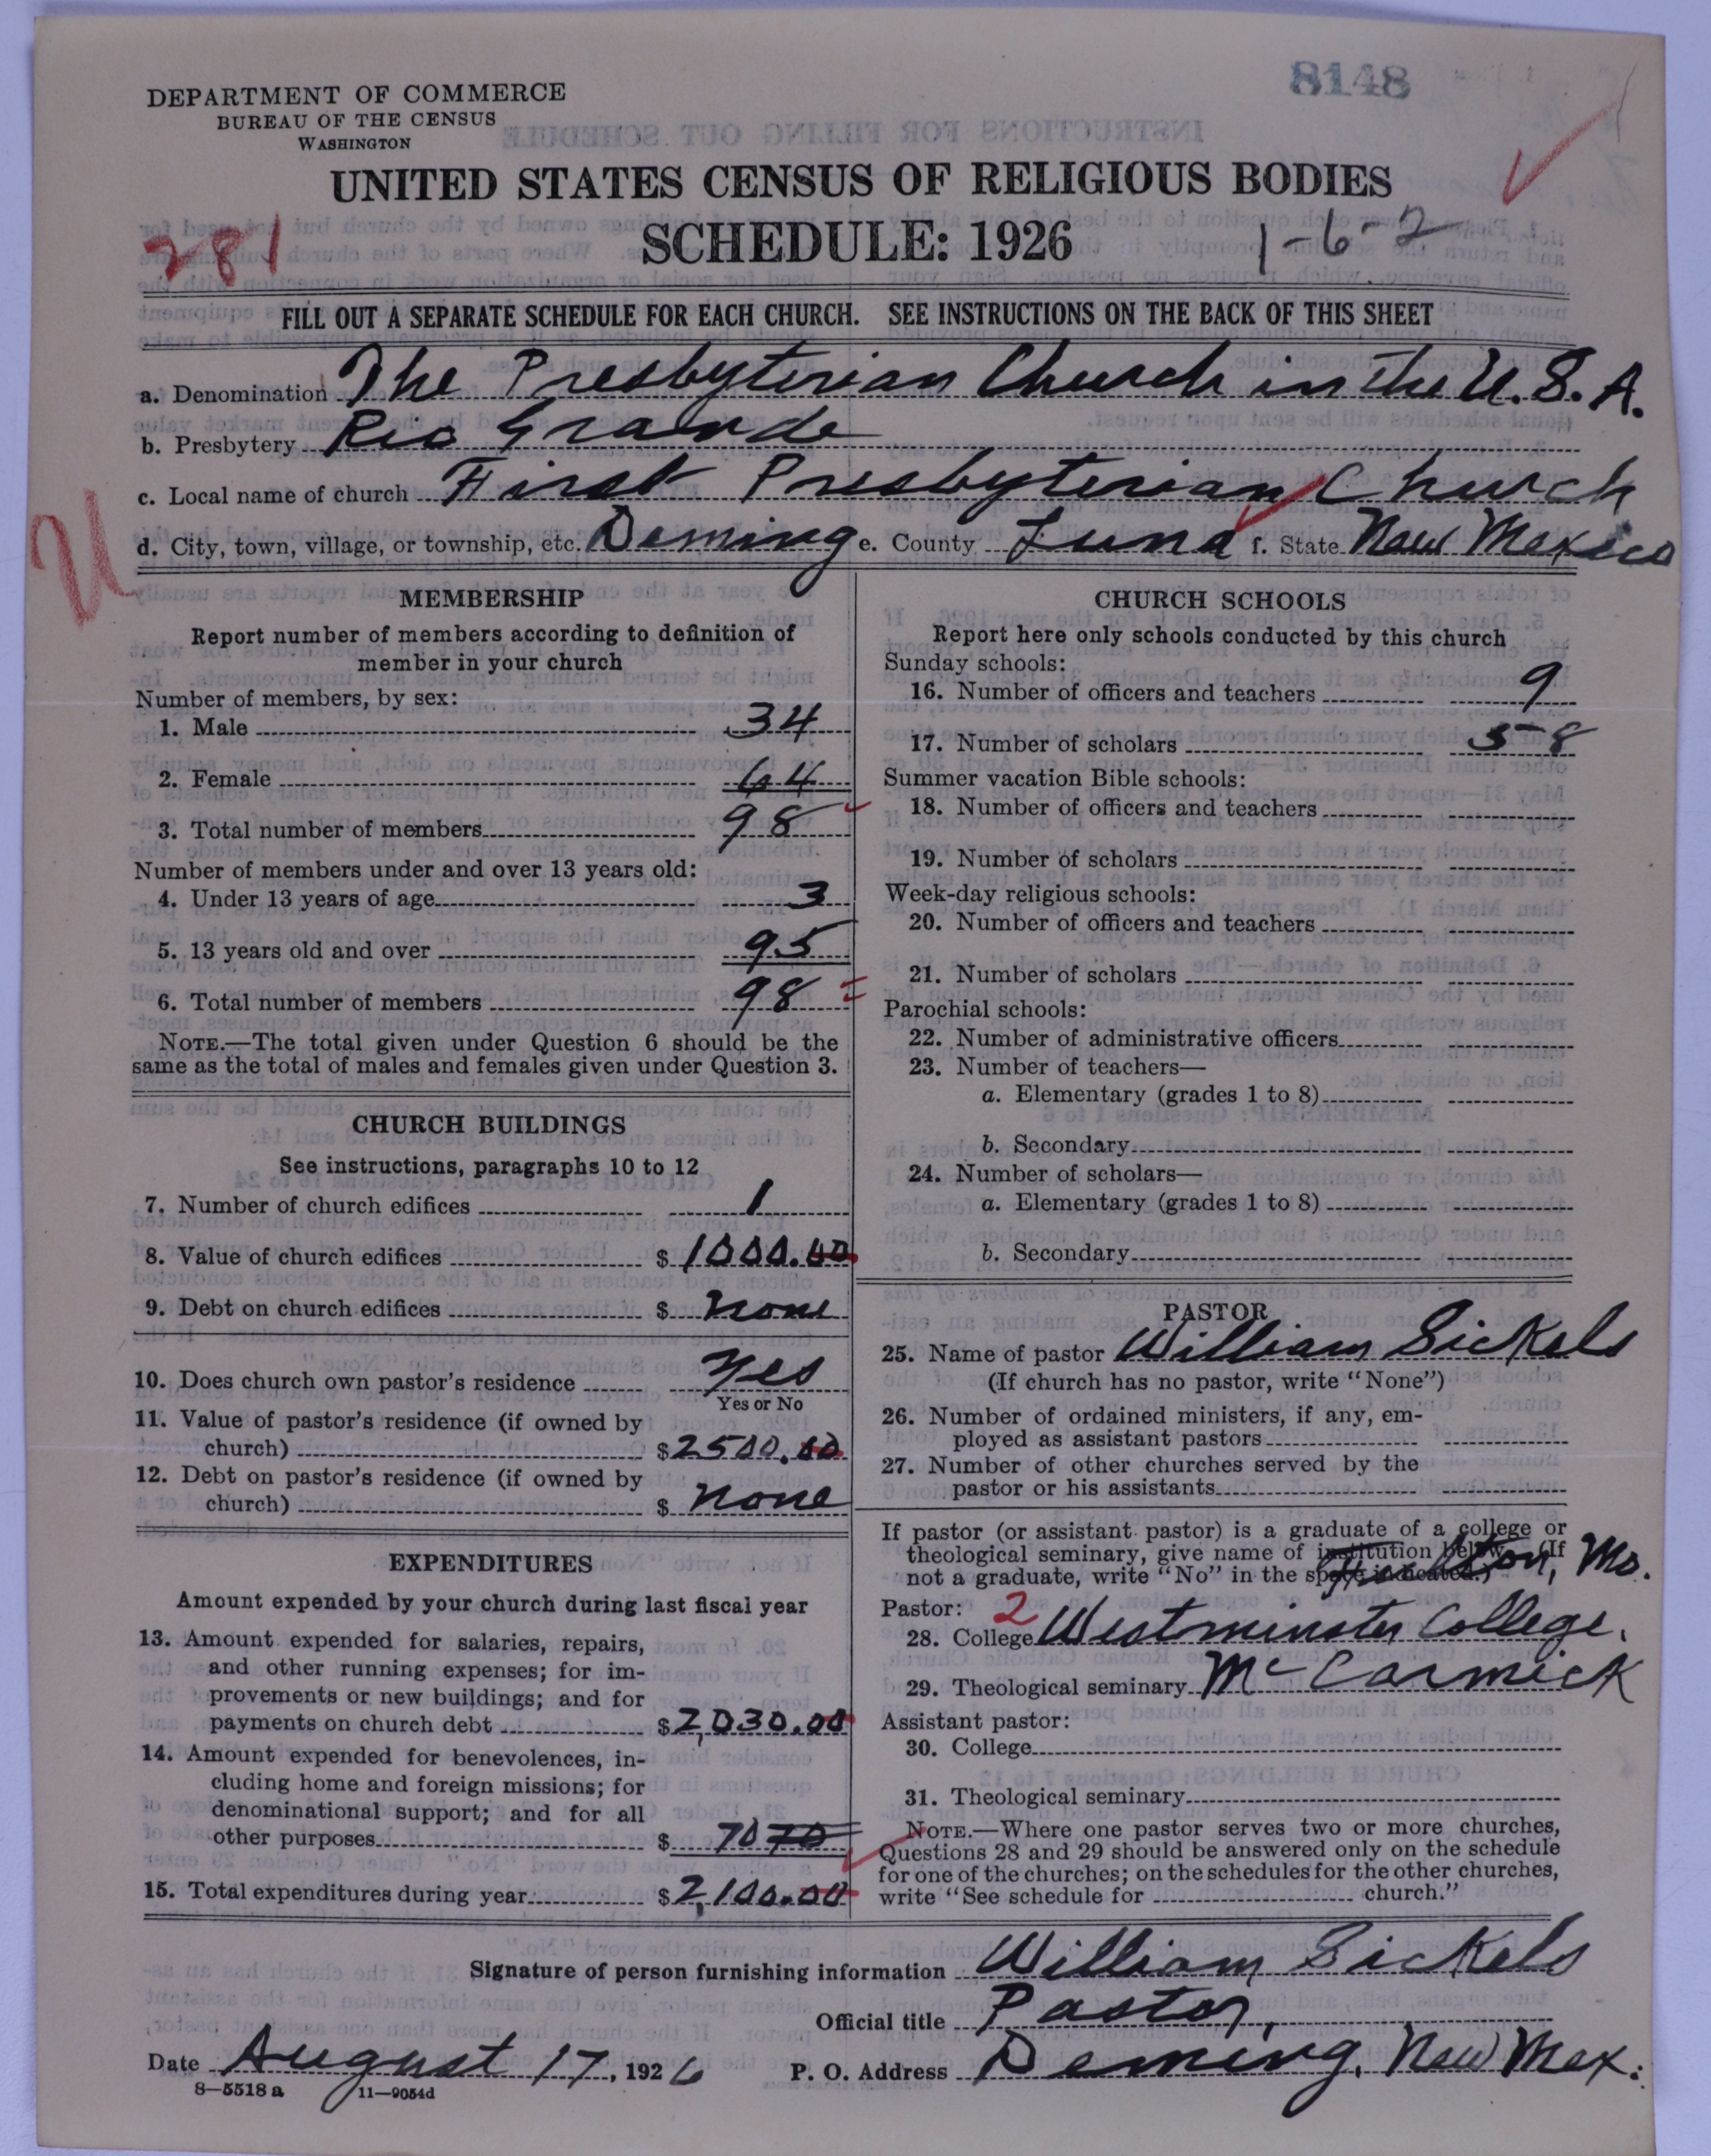 8148
DEPARTMENT OF COMMERCE
BUREAU OF THE CENSUS
WASHINGTON
UNITED STATES CENSUS OF RELIGIOUS BODIES
SCHEDULE: 1926
281
1-6-2
FILL OUT A SEPARATE SCHEDULE FOR EACH CHURCH. SEE INSTRUCTIONS ON THE BACK OF THIS SHEET
a. Denomination The Presbyterian Church in the U.S.A.
b. Presbytery Rio Grande
c. Local name of church First Presbyterian Church
d. City, town, village, or township, etc. Deming e. County Luna f. State New Mexico
U
MEMBERSHIP
Report number of members according to definition of
member in your church
Number of members, by sex:
1. Male 34
2. Female 64
3. Total number of members 98
Number of members under and over 13 years old:
4. Under 13 years of age 3
5. 13 years old and over 95
6. Total number of members 98
NOTE.—The total given under Question 6 should be the
same as the total of males and females given under Question 3.
CHURCH BUILDINGS
See instructions, paragraphs 10 to 12
7. Number of church edifices 1
8. Value of church edifices $ 1000.00
9. Debt on church edifices $ None
10. Does church own pastor's residence Yes
Yes or No
11. Value of pastor's residence (if owned by
church) $ 2500.00
12. Debt on pastor's residence (if owned by
church) $ none
EXPENDITURES
Amount expended by your church during last fiscal year
13. Amount expended for salaries, repairs,
and other running expenses; for im-
provements or new buildings; and for
payments on church debt $ 2,030.00
14. Amount expended for benevolences, in-
cluding home and foreign missions; for
denominational support; and for all
other purposes $ 70 70
15. Total expenditures during year $ 2,100.00
CHURCH SCHOOLS
Report here only schools conducted by this church
Sunday schools:
16. Number of officers and teachers 9
17. Number of scholars 58
Summer vacation Bible schools:
18. Number of officers and teachers
19. Number of scholars
Week-day religious schools:
20. Number of officers and teachers
21. Number of scholars
Parochial schools:
22. Number of administrative officers
23. Number of teachers—
a. Elementary (grades 1 to 8)
b. Secondary
24. Number of scholars—
a. Elementary (grades 1 to 8)
b. Secondary
PASTOR
25. Name of pastor William Sickels
(If church has no pastor, write "None")
26. Number of ordained ministers, if any, em-
ployed as assistant pastors
27. Number of other churches served by the
pastor or his assistants
If pastor (or assistant pastor) is a graduate of a college or
theological seminary, give name of institution below. (If
not a graduate, write "No" in the space indicated.)
Fulton, Mo.
Pastor: 2
28. College Westminster College.
29. Theological seminary McCormick
Assistant pastor:
30. College
31. Theological seminary
NOTE.—Where one pastor serves two or more churches,
Questions 28 and 29 should be answered only on the schedule
for one of the churches; on the schedules for the other churches,
write "See schedule for church."
Signature of person furnishing information William Sickels
Official title Pastor,
Date August 17, 1926 P. O. Address Deming, New Mex.
8—5518 a 11—9054d